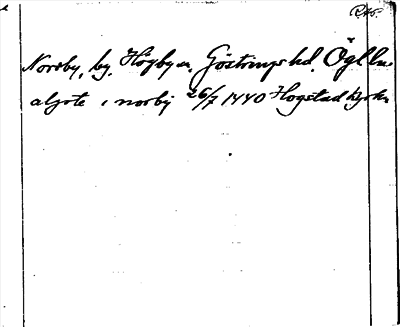 Norrby, by. Högby sn. Göstrings hd. Ögl
algote i norby 26/7 1440 Hogstad kyrka